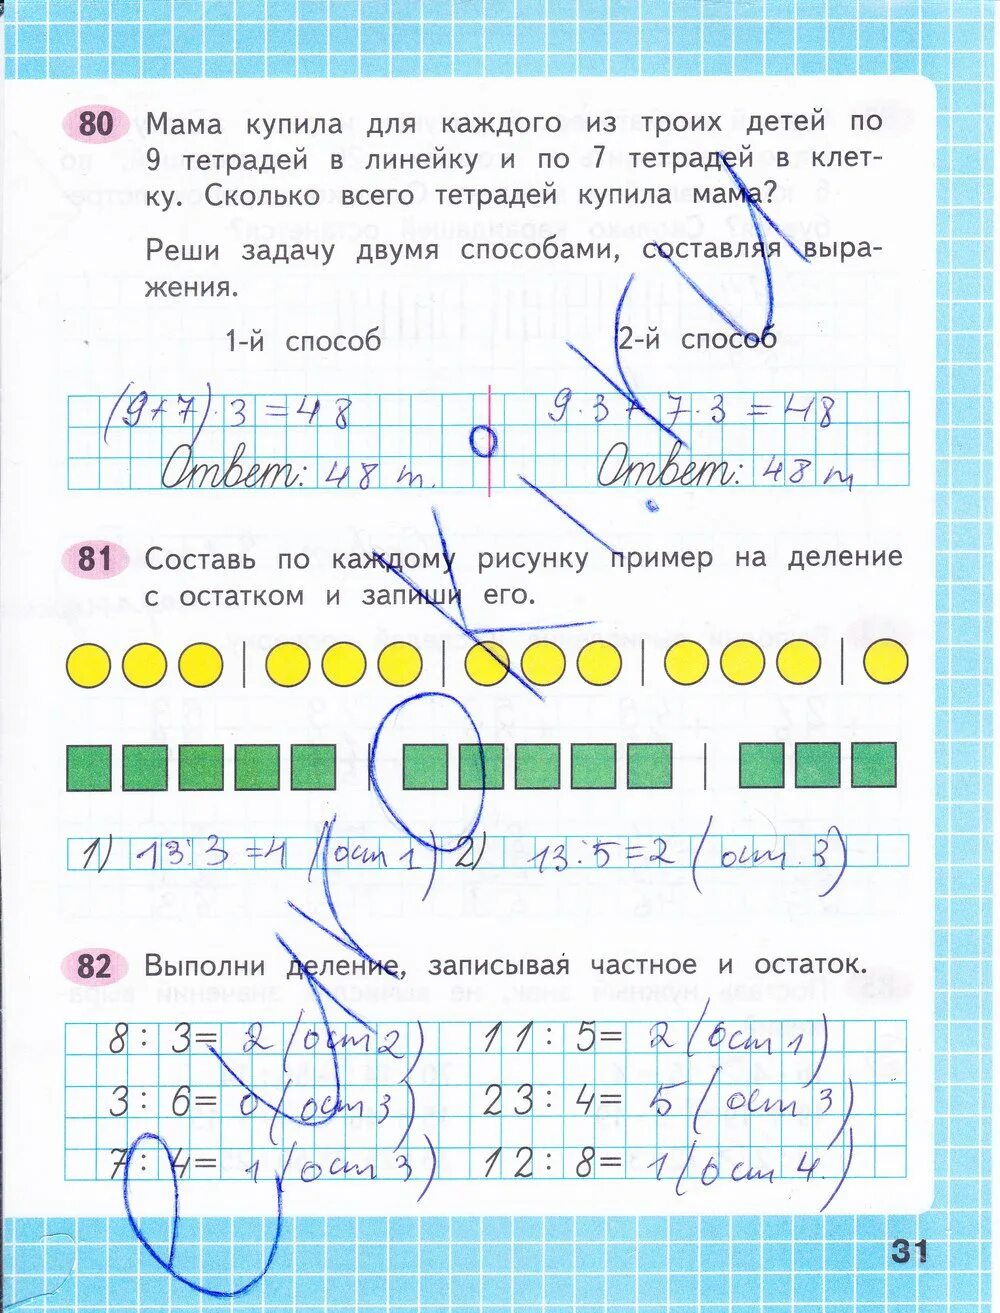 80 Мама купила для каждого из троих детей по
9 тетрадей в линейку и по 7 тетрадей в клет-
ку. Сколько всего тетрадей купила мама?
Реши задачу двумя способами, составляя выра-
жения.
1-й способ 2-й способ
(9+7)·3=48 9·3+7·3=48
Ответ: 48 т. Ответ: 48 т
81 Составь по каждому рисунку пример на деление
с остатком и запиши его.
1) 13:3=4 (ост 1) 2) 13:5=2 (ост. 3)
82 Выполни деление, записывая частное и остаток.
8:3=2 (ост 2) 11:5=2 (ост 1)
3:6=0 (ост 3) 23:4=5 (ост 3)
7:4=1 (ост 3) 12:8=1 (ост 4.)
31